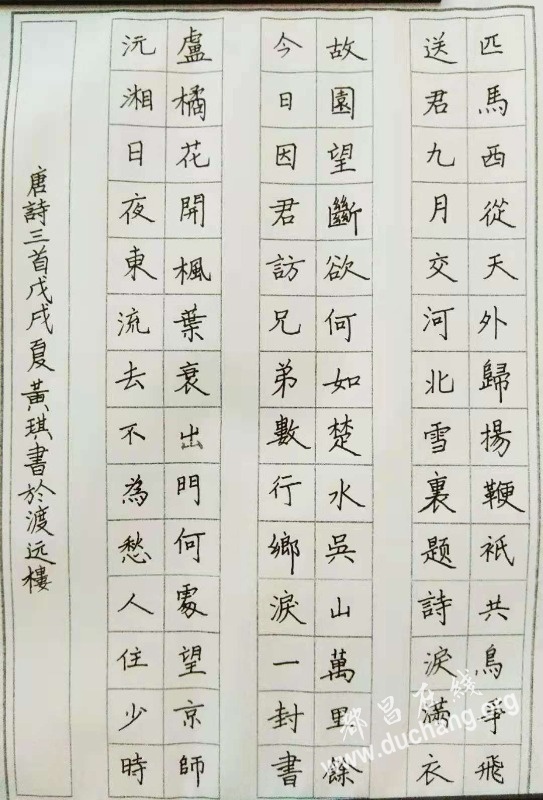 匹馬西從天外歸揚鞭衹共鳥爭飛
送君九月交河北雪裏題詩淚滿衣
故園望斷欲何如楚水吳山萬里餘
今日因君訪兄弟數行鄉淚一封書
盧橘花開楓葉衰出門何處望京師
沅湘日夜東流去不為愁人住少時
唐詩三首戊戌夏黃琪書於渡远樓
都昌在线
www.duchang.org